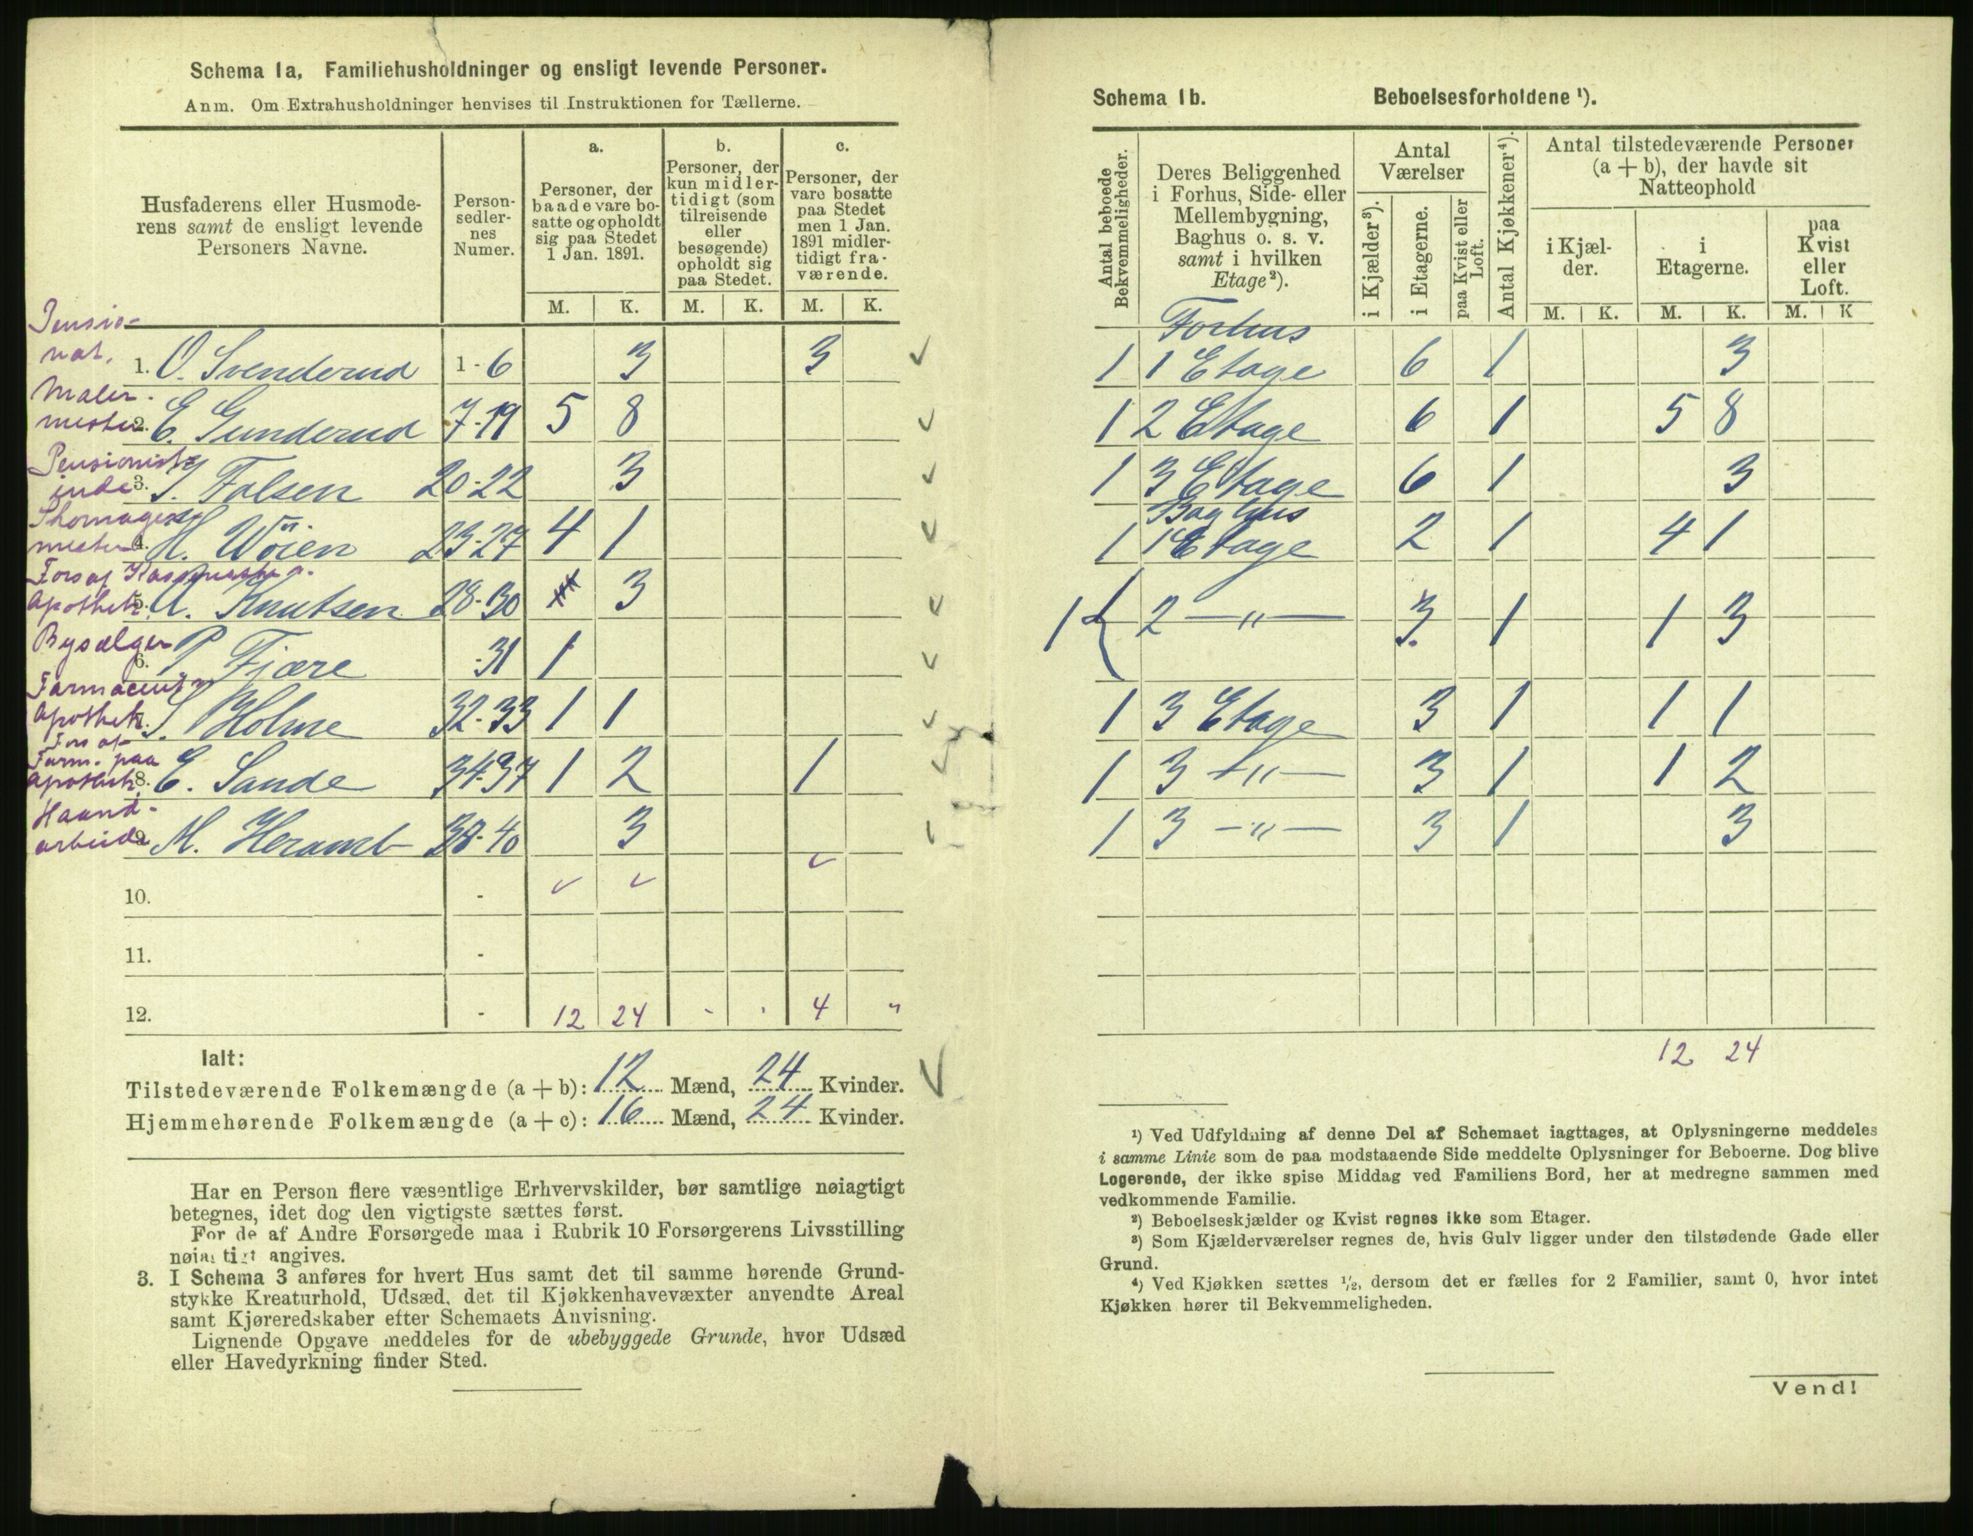 Schema 1a, Familiehusholdninger og ensligt levende Personer.
Anm. Om Extrahusholdninger henvises til Instruktionen for Tællerne.
Husfaderens eller Husmode-
rens samt de ensligt levende
Personers Navne.
Person-
sedler-
nes
Numer.
a.
Personer, der
baade vare bo-
satte og opholdt
sig paa Stedet
1 Jan. 1891.
b.
Personer, der
kun midler-
tidigt (som
tilreisende
eller
besøgende)
opholdt sig
paa Stedet.
c.
Personer, der
vare bosatte
paa Stedet
men 1 Jan.
1891 midler-
tidigt fra-
værende.
M. K. M. K. M. K.
Pensio-
nat.
1. O. Svenderud 1-6 3 3
Maler-
mester
2. E. Gunderud 7-19 5 8
Pensionist-
inde
3. I. Folsen 20-22 3
Skomager-
mester
4. H. Wöien 23-27 4 1
Fors af
Apothek
5. A. Knutsen 28-30 3
Bysælger
6. P. Fjære -31 1
Farmaceut
Apothek
7. S. Holme 32-33 1 1
Fors af
Farm. paa
Apothek
8. E. Sande 34-37 1 2 1
Haand-
arbeide
9. M. Heramb 38-40 3
10. -
11. -
12. - 12 24 - - 4 "
Ialt:
Tilstedeværende Folkemængde (a + b): 12 Mænd, 24 Kvinder.
Hjemmehørende Folkemængde (a + c): 16 Mænd, 24 Kvinder.
Har en Person flere væsentlige Erhvervskilder, bør samtlige nøiagtigt
betegnes, idet dog den vigtigste sættes først.
For de af Andre Forsørgede maa i Rubrik 10 Forsørgerens Livsstilling
nøiagtigt angives.
3. I Schema 3 anføres for hvert Hus samt det til samme hørende Grund-
stykke Kreaturhold, Udsæd, det til Kjøkkenhavevæxter anvendte Areal
samt Kjøreredskaber efter Schemaets Anvisning.
Lignende Opgave meddeles for de ubebyggede Grunde, hvor Udsæd
eller Havedyrkning finder Sted.
Schema 1b. Beboelsesforholdene ¹).
Antal beboede
Bekvemmeligheder.
Deres Beliggenhed
i Forhus, Side- eller
Mellembygning,
Baghus o. s. v.
samt i hvilken
Etage²).
Antal
Værelser
i Kjælder³).
i Etagerne.
paa Kvist eller
Loft.
Antal Kjøkkener⁴).
Antal tilstedeværende Personer
(a + b), der havde sit
Natteophold
i Kjæl-
der.
i
Etagerne.
paa
Kvist
eller
Loft.
M. K. M. K. M. K
Forhus
1 1 Etage 6 1 3
1 2 Etage 6 1 5 8
1 3 Etage 6 1 3
Baghus
1 1 Etage 2 1 4 1
1 { 2 —"— 3. 1 1 3
1 3 Etage 3 1 1 1
1 3 —"— 3 1 1 2
1 3 —"— 3 1 3
12 24
¹) Ved Udfyldning af denne Del af Schemaet iagttages, at Oplysningerne meddeles
i samme Linie som de paa modstaaende Side meddelte Oplysninger for Beboerne. Dog blive
Logerende, der ikke spise Middag ved Familiens Bord, her at medregne sammen med
vedkommende Familie.
²) Beboelseskjælder og Kvist regnes ikke som Etager.
³) Som Kjælderværelser regnes de, hvis Gulv ligger under den tilstødende Gade eller
Grund.
⁴) Ved Kjøkken sættes ½, dersom det er fælles for 2 Familier, samt 0, hvor intet
Kjøkken hører til Bekvemmeligheden.
Vend!